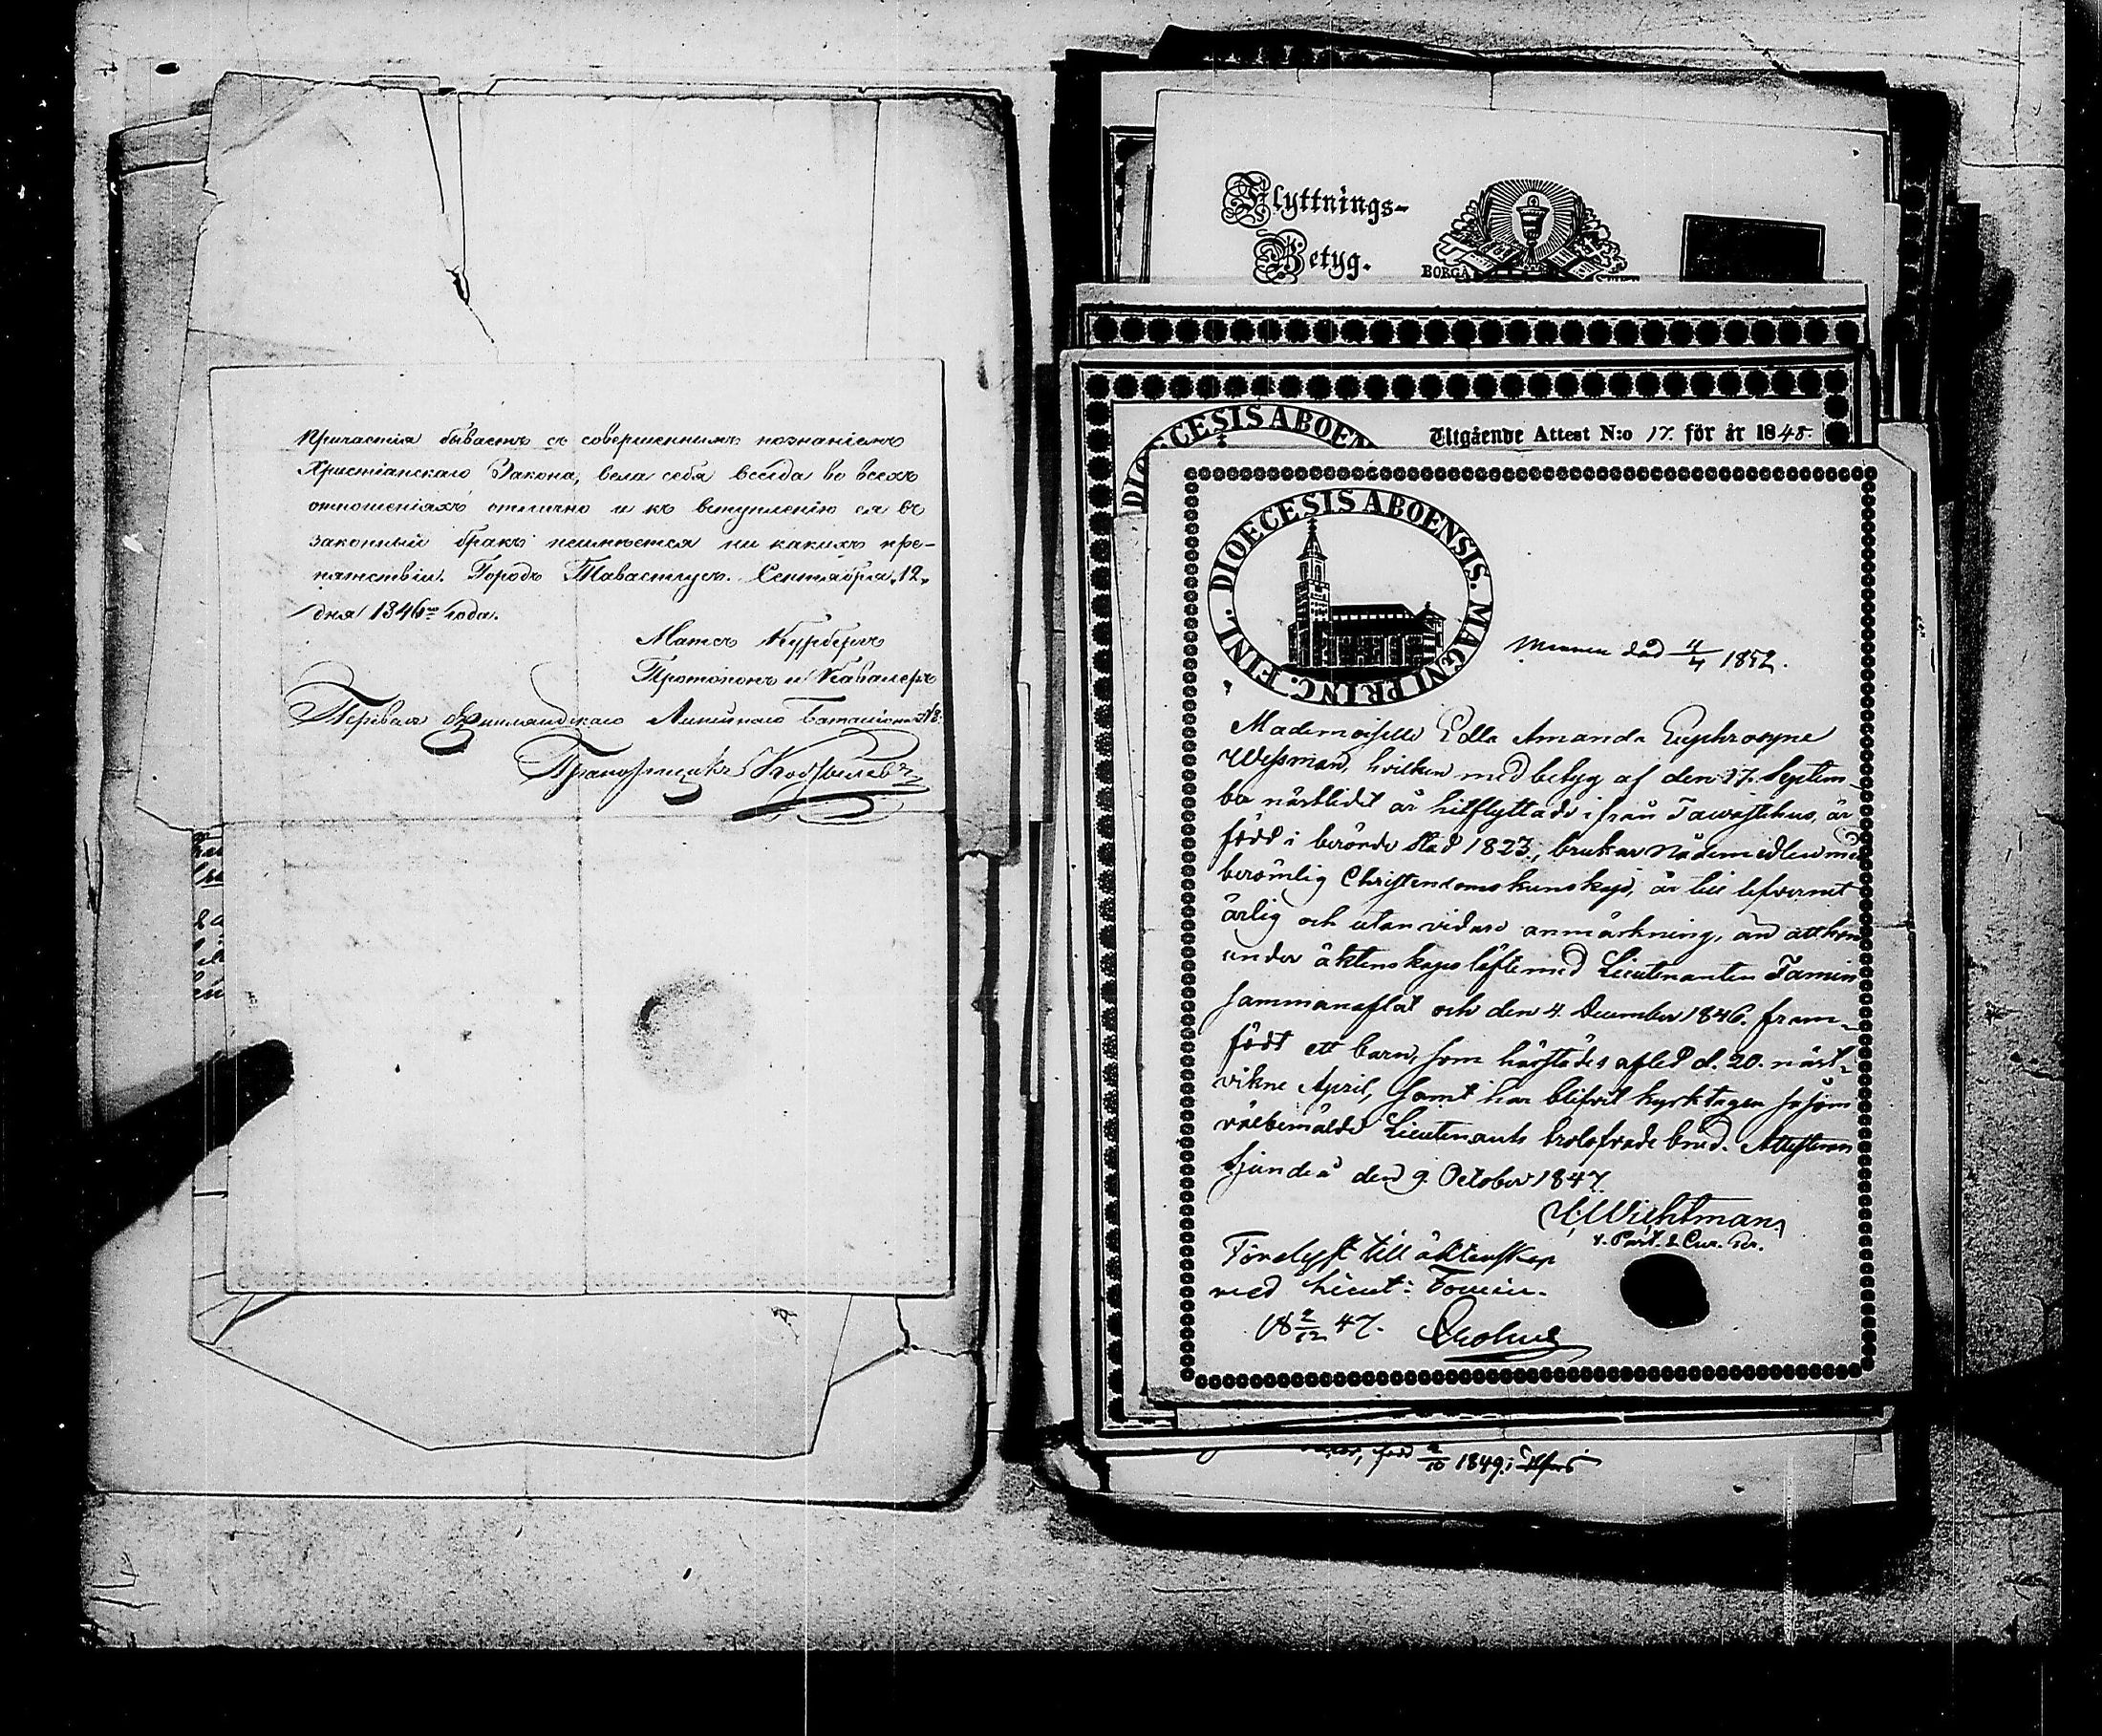 причастія бываетъ съ совершеннымъ познаніемъ
Христіанскаго Закона, вела себя всегда во всехъ
отношеніяхъ отлично и къ вступленію ея въ
законный бракъ неимѣется ни какихъ пре-
пятствіи. Городъ Тавастгусъ. Сентября „12„
дня 1846го года.
Матсъ
Протопопъ и Кавалеръ
Перевелъ Финляндскаго Линейнаго Баталіона №8.
Прапорщикъ
Flyttnings-
Betyg.
BORGÅ
DIOECESIS ABOEN
Utgående Attest N:o 17. för år 1848.
DIOECESIS ABOENSIS. MAGNI PRINC. FINL.
död 4/4 1852.
Mademoiselle Edla Amanda Euphrosyne
Wessman, hvilken med betyg af den 17. Septem-
ber nästlidit år hitflyttade ifrån Tawastehus, är
född i berörde stad 1823, brukar Nådemedlen med
berömlig Christendomskunskap, är till lefvernet
ärlig och utan vidare anmärkning, än att hon
under äktenskapslöfte med Lieutenanten Tamin
sammanaflat och den 4. December 1846. fram-
födt ett barn, som härstädes afled d. 20. näst-
vikne April, samt har blifvit kyrktagen såsom
välbemälde Lieutenants trolofvade brud. Attesteras
Sjundeå den 9. October 1847.
Wichtman
v. Past. & Cur.
Förelyst till äktenskap
med Lieut: Tomin.
18 2/12 47.
född 2/10 1849 i